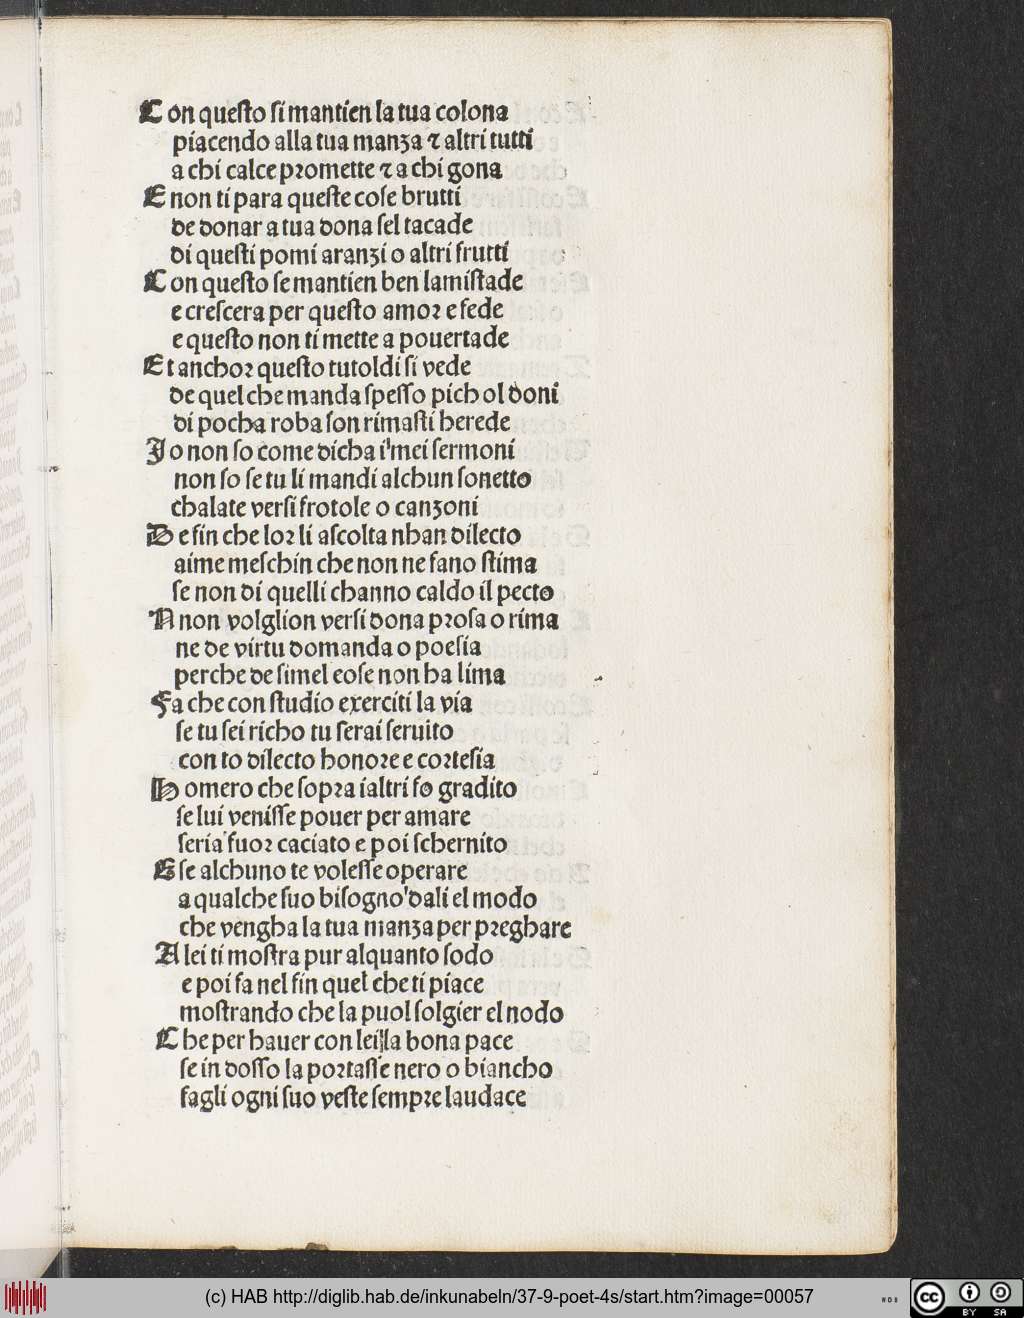 Con queſto ſi mantien la tua colona
piacendo alla tua manza ⁊ altri tutti
a chi calce promette ⁊ a chi gona
E non ti para queſte coſe brutti
de donar a tua dona ſel tacade
di queſti pomi aranzi o altri frutti
Con queſto ſe mantien ben lamiſtade
e creſcera per queſto amor e fede
e queſto non ti mette a pouertade
Et anchor queſto tutoldi ſi vede
de quel che manda ſpeſſo pich ol doni
di pocha roba ſon rimaſti herede
Io non ſo come dicha i'mei ſermoni
non ſo ſe tu li mandi alchun ſonetto
chalate verſi frotole o canzoni
De fin che lor li aſcolta nhan dilecto
aime meſchin che non ne fano ſtima
ſe non di quelli channo caldo il pecto
N non volglion verſi dona proſa o rima
ne de virtu domanda o poeſia
perche de ſimel coſe non ha lima
Fa che con ſtudio exerciti la via
ſe tu ſei richo tu ſerai ſeruito
con to dilecto honore e corteſia
Homero che ſopra ialtri fo gradito
ſe lui veniſſe pouer per amare
ſeria fuor caciato e poi ſchernito
E ſe alchuno te voleſſe operare
a qualche ſuo biſogno'dali el modo
che vengha la tua manza per preghare
A lei ti moſtra pur alquanto ſodo
e poi fa nel fin quel che ti piace
moſtrando che la puol ſolgier el nodo
Che per hauer con lei la bona pace
ſe in doſſo la portaſſe nero o biancho
fagli ogni ſuo veſte ſempre laudace
(c) HAB http://diglib.hab.de/inkunabeln/37-9-poet-4s/start.htm?image=00057
cc
BY SA